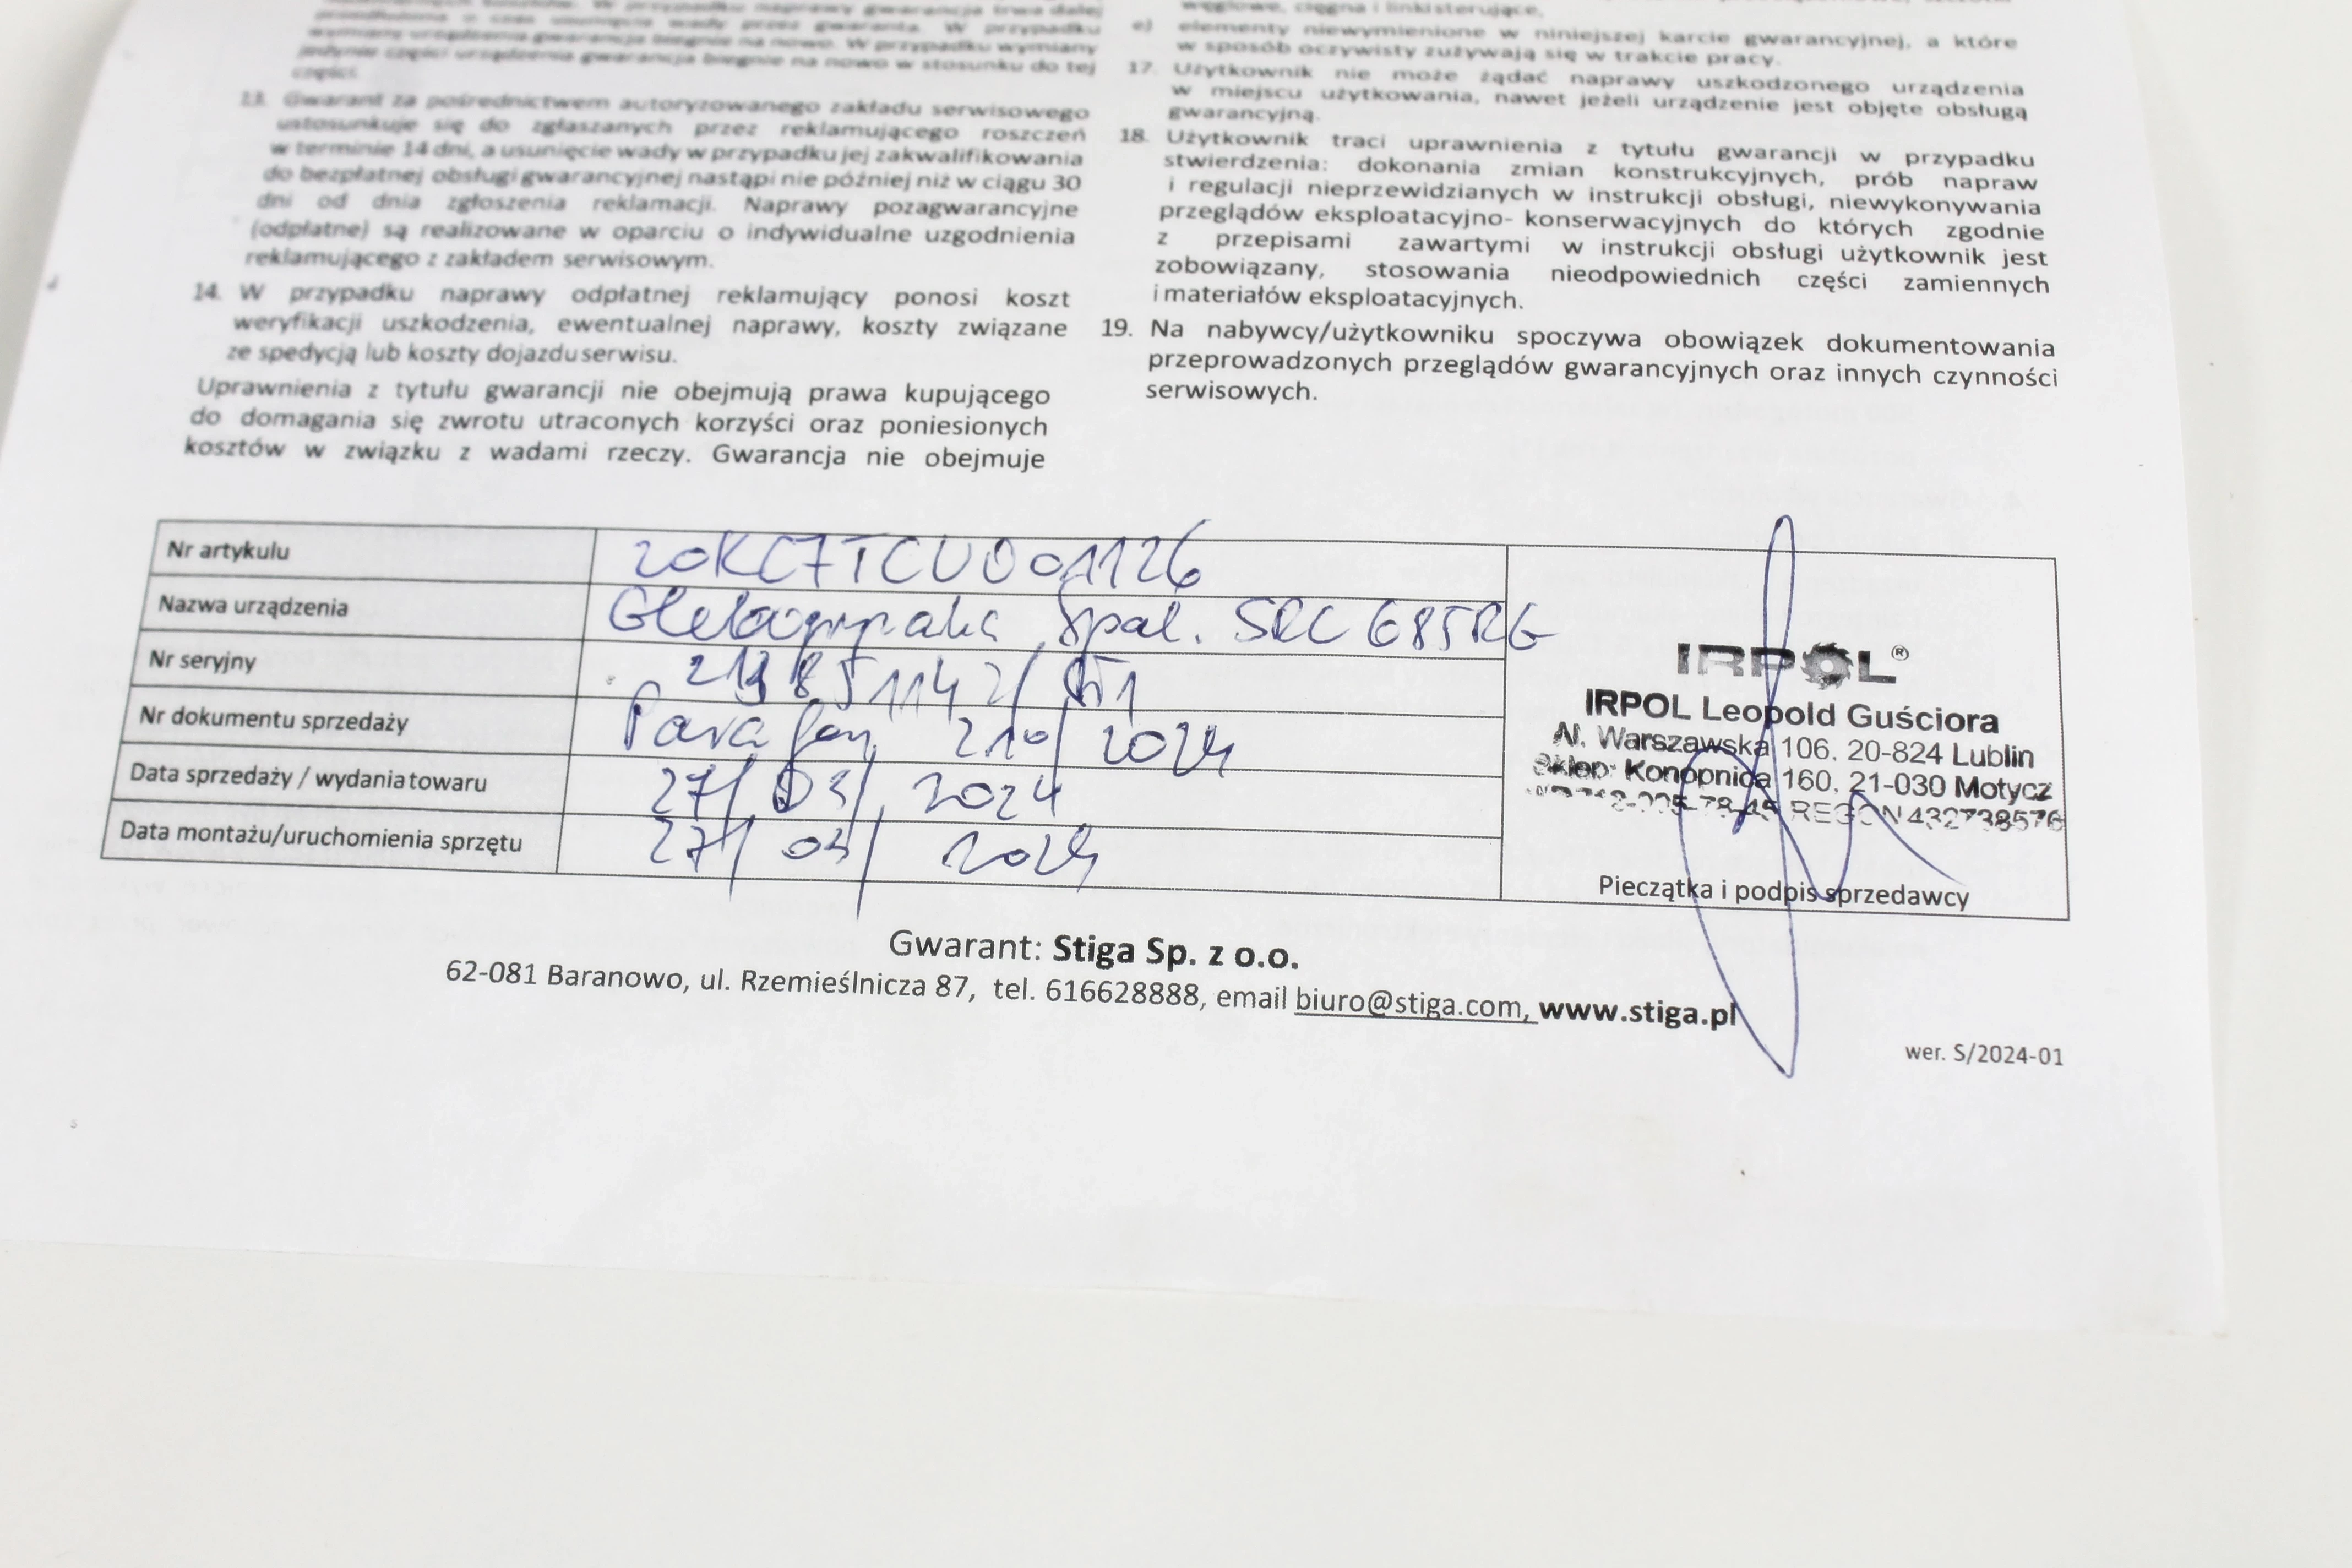 przedłużona o czas usunięcia wady przez gwaranta. W przypadku
wymiany urządzenia gwarancja biegnie na nowo. W przypadku wymiany
jedynie części urządzenia gwarancja biegnie na nowo w stosunku do tej
części.
13. Gwarant za pośrednictwem autoryzowanego zakładu serwisowego
ustosunkuje się do zgłaszanych przez reklamującego roszczeń
w terminie 14 dni, a usunięcie wady w przypadku jej zakwalifikowania
do bezpłatnej obsługi gwarancyjnej nastąpi nie później niż w ciągu 30
dni od dnia zgłoszenia reklamacji. Naprawy pozagwarancyjne
(odpłatne) są realizowane w oparciu o indywidualne uzgodnienia
reklamującego z zakładem serwisowym.
14. W przypadku naprawy odpłatnej reklamujący ponosi koszt
weryfikacji uszkodzenia, ewentualnej naprawy, koszty związane
ze spedycją lub koszty dojazdu serwisu.
Uprawnienia z tytułu gwarancji nie obejmują prawa kupującego
do domagania się zwrotu utraconych korzyści oraz poniesionych
kosztów w związku z wadami rzeczy. Gwarancja nie obejmuje
węglowe, cięgna i linki sterujące,
e) elementy niewymienione w niniejszej karcie gwarancyjnej, a które
w sposób oczywisty zużywają się w trakcie pracy.
17. Użytkownik nie może żądać naprawy uszkodzonego urządzenia
w miejscu użytkowania, nawet jeżeli urządzenie jest objęte obsługą
gwarancyjną.
18. Użytkownik traci uprawnienia z tytułu gwarancji w przypadku
stwierdzenia: dokonania zmian konstrukcyjnych, prób napraw
i regulacji nieprzewidzianych w instrukcji obsługi, niewykonywania
przeglądów eksploatacyjno- konserwacyjnych do których zgodnie
z przepisami zawartymi w instrukcji obsługi użytkownik jest
zobowiązany, stosowania nieodpowiednich części zamiennych
i materiałów eksploatacyjnych.
19. Na nabywcy/użytkowniku spoczywa obowiązek dokumentowania
przeprowadzonych przeglądów gwarancyjnych oraz innych czynności
serwisowych.
Nr artykulu 20KC7TCU001126
Nazwa urządzenia Glebogryzarka Spal. SRC 685RG
Nr seryjny
Nr dokumentu sprzedaży Paragon 210/2024
Data sprzedaży / wydania towaru 27/03/2024
Data montażu/uruchomienia sprzętu 27/03/2024
IRPOL®
IRPOL Leopold Guściora
Al. Warszawska 106, 20-824 Lublin
Sklep: Konopnica 160, 21-030 Motycz
REGON 432738576
Pieczątka i podpis sprzedawcy
Gwarant: Stiga Sp. z o.o.
62-081 Baranowo, ul. Rzemieślnicza 87, tel. 616628888, email biuro@stiga.com, www.stiga.pl
wer. S/2024-01